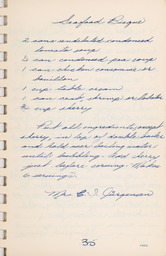 Seafood Bisque
2 cans undiluted condensed
tomato soup
1 can condensed pea soup
1 can chicken consomme or
bouillon
1 cup table cream
1 can crab, shrimp or lobster
sherry
Put all ingredients, except
sherry, in top of double boiler
and hold over boiling water
until bubbling. Add sherry
just before serving. Makes
6 servings.
Mrs. C. I. Jorgensen
35